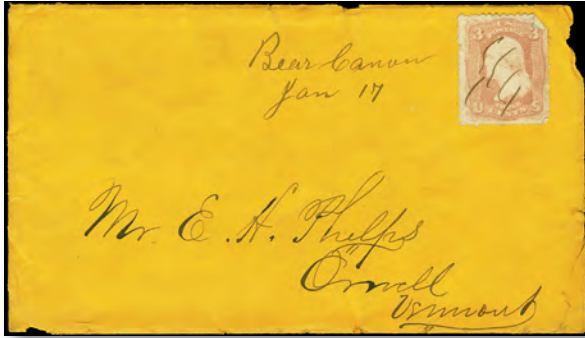 Bear Canon
Jan 17
3 3
U CENTS S
Mr. E. H. Phelps
Orwell
Vermont